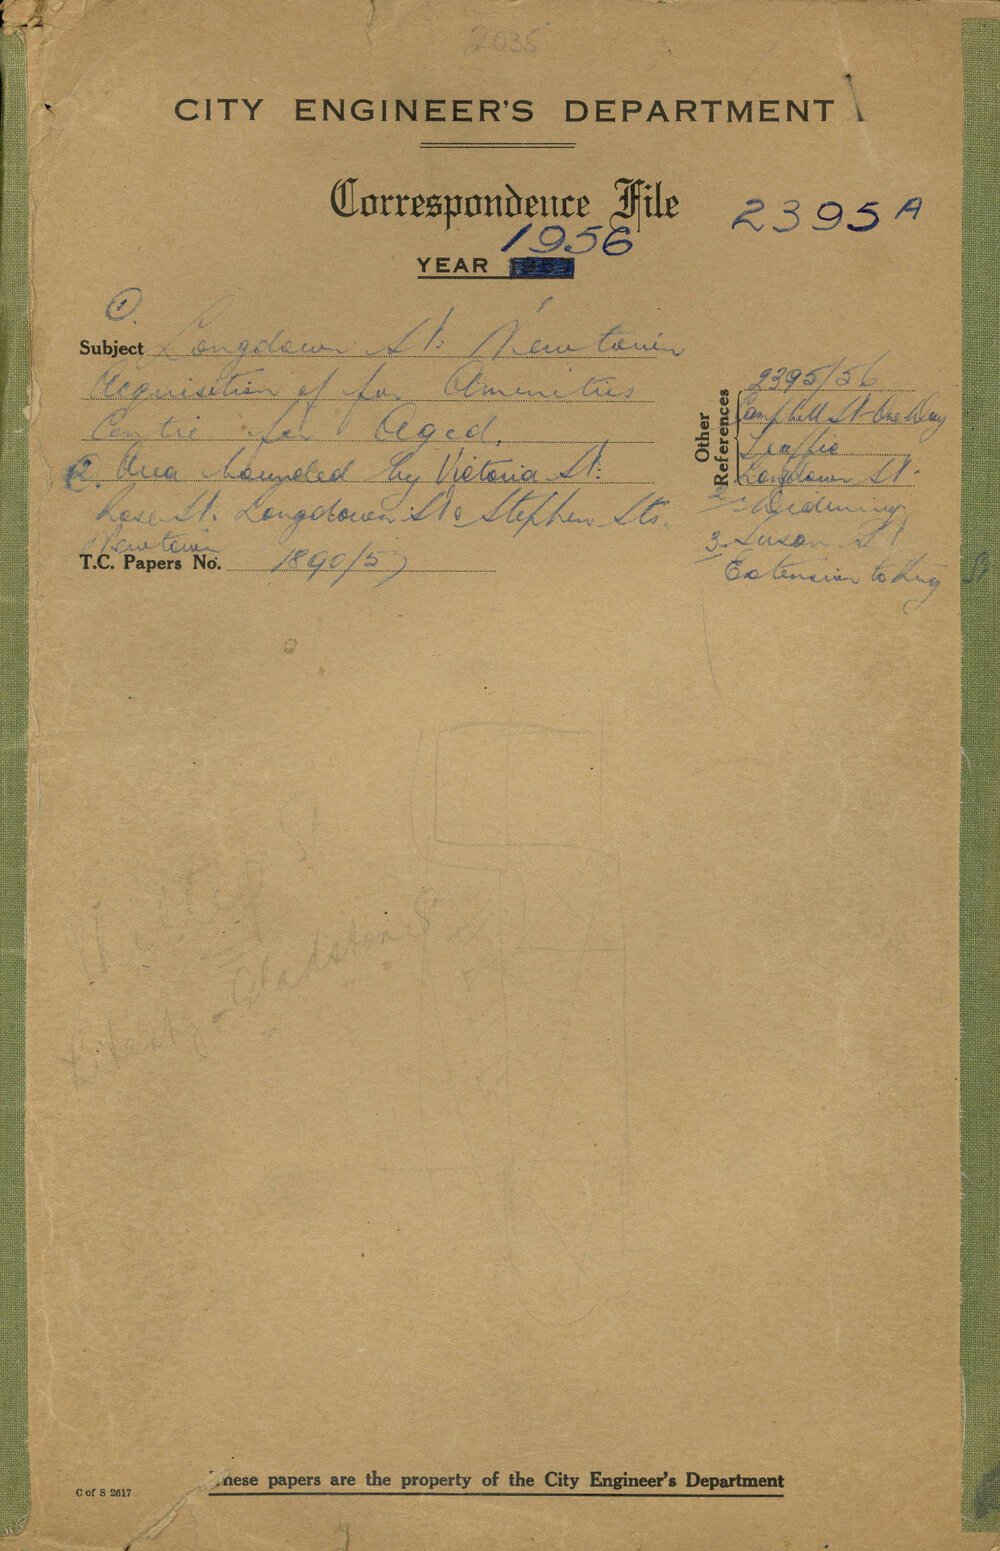 2035
CITY ENGINEER'S DEPARTMENT
Correspondence File
2395 A
1956
YEAR
1.
Subject Longdown St: Newtown
Acquisition of for Amenities
Centre for Aged.
2. Area bounded by Victoria St:
Rose St. Longdown St & Stephen Sts.
Newtown
T.C. Papers No. 1890/57
Other References
2395/56
Campbell St - One Way
Traffic
2 Longdown St.
Widening
3 Susan St
Extension to King St
Gladstone St
These papers are the property of the City Engineer's Department
C of S 2617